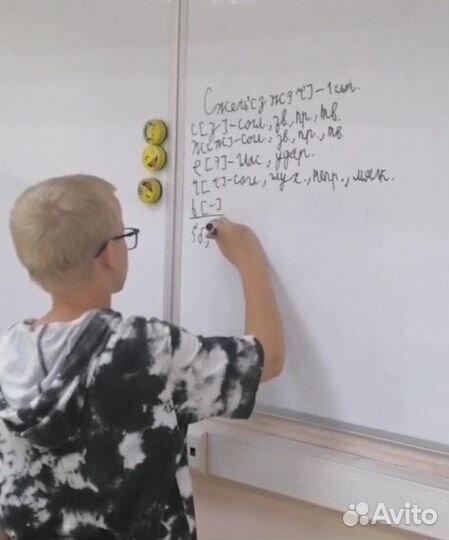 Сжечь [з ж э ч'] - 1 слг.
с [з] - согл., зв., пр., тв.
ж [ж] - согл., зв., пр., тв
е [э] - глас., удар.
ч [ч'] - согл., глух., непр., мягк.
ь [-]
5б,
Avito